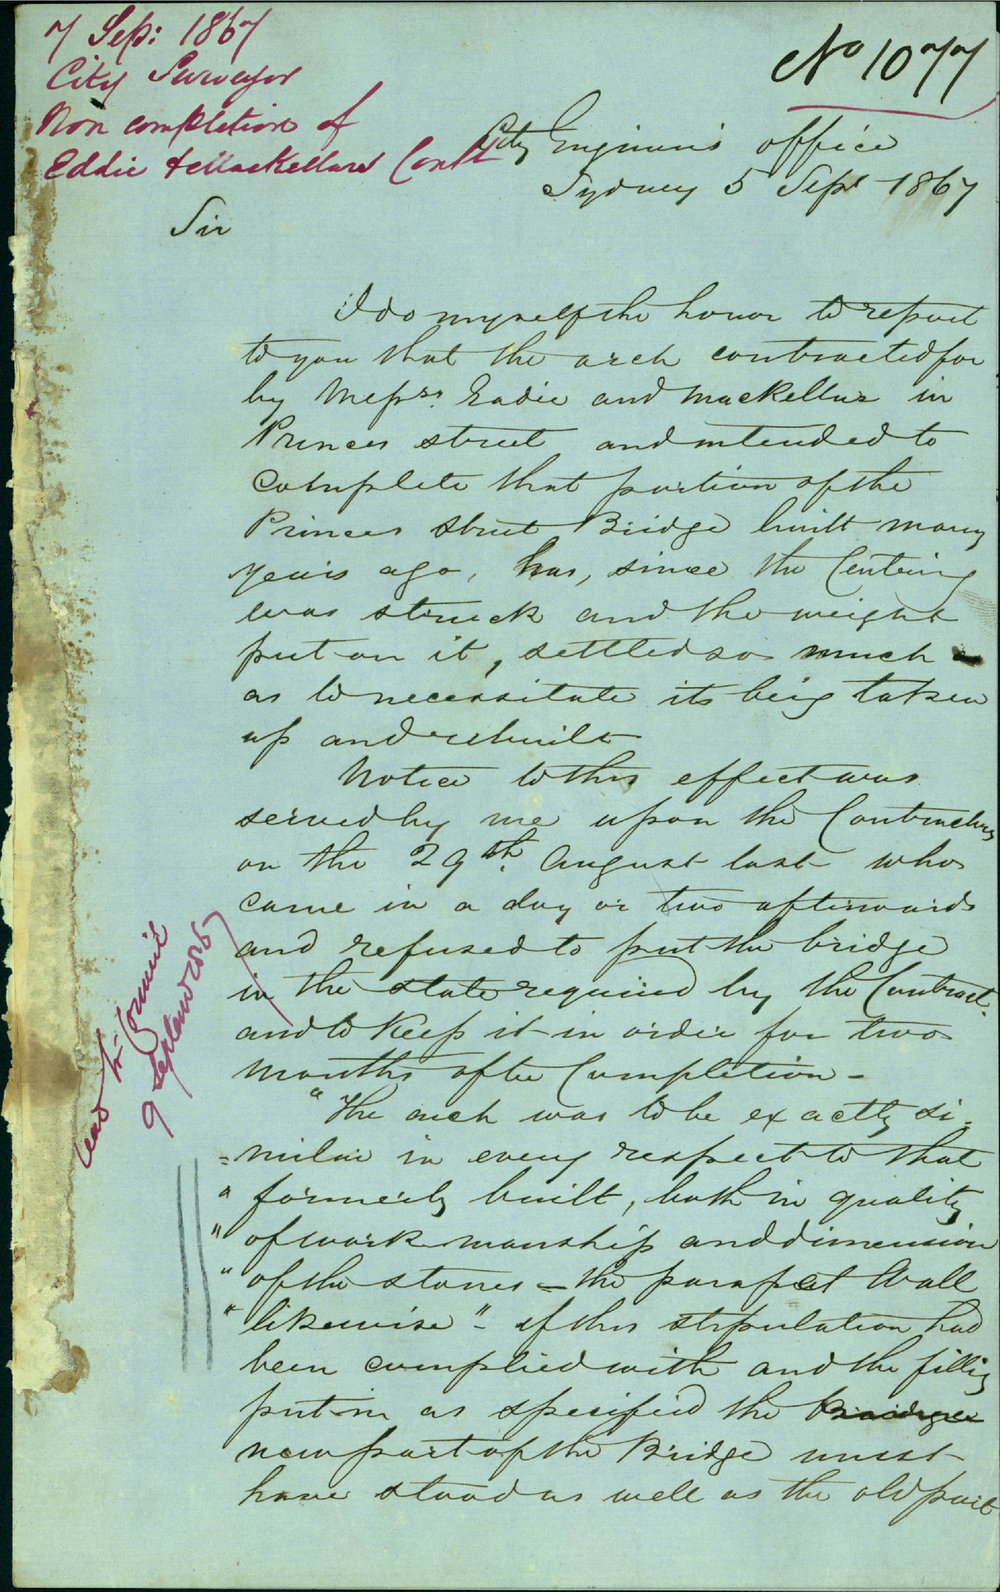 7 Sep: 1867
City Surveyor
Non completion of
Eddie & MacKellars Cont
No 1077
City Engineer's office
Sydney 5 Sept 1867
Sir
I do myself the honor to report
to you that the arch contracted for
by Messrs. Eadie and MacKellar in
Princes street and intended to
complete that portion of the
Princes Street Bridge built many
years ago, has, since the Centering
was struck and the weight
put on it, settled so much
as to necessitate its being taken
up and rebuilt
Notice to this effect was
served by me upon the Contractors
on the 29th. August last who
came in a day or two afterwards
and refused to put the bridge
in the state required by the Contract.
and to Keep it in order for two
months after Completion -
"The arch was to be exactly si-
=milar in every respect to that
" formerly built, both in quality
" of workmanship and dimension
" of the stones - the parapet Wall
" likewise" - if this stipulation had
been complied with and the filling
put in as specified the Bridge
new part of the Bridge must
have stood as well as the old part
read in Council
9 September 67